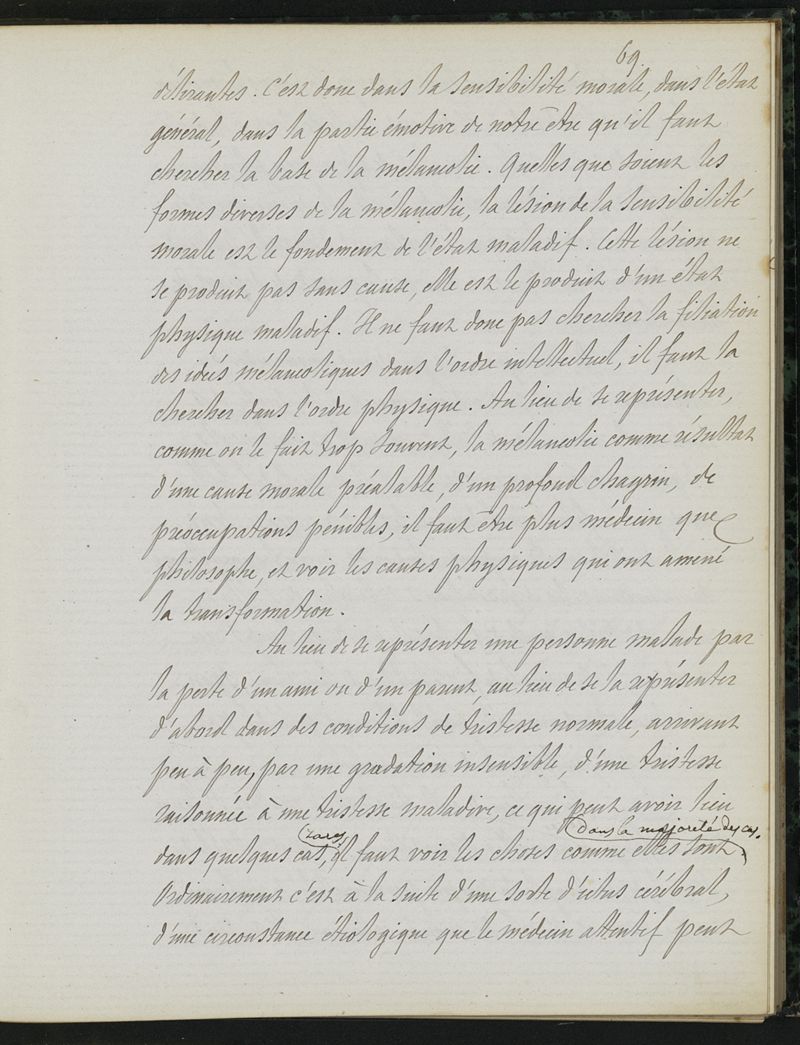 69.
délirantes. C'est donc dans la sensibilité morale, dans l'état
général, dans la partie émotive de notre être qu'il faut
chercher la base de la mélancolie. Quelles que soient les
formes diverses de la mélancolie, la lésion de la sensibilité
morale est le fondement de l'état maladif. Cette lésion ne
se produit pas sans cause, elle est le produit d'un état
physique maladif. Il ne faut donc pas chercher la filiation
des idées mélancoliques dans l'ordre intellectuel, il faut la
chercher dans l'ordre physique. Au lieu de se représenter,
comme on le fait trop souvent, la mélancolie comme résultat
d'une cause morale préalable, d'un profond chagrin, de
préoccupations pénibles, il faut être plus médecin que
philosophe, et voir les causes physiques qui ont amené
la transformation.
Au lieu de se représenter une personne malade par
la perte d'un ami ou d'un parent, au lieu de se la représenter
d'abord dans des conditions de tristesse normale, arrivant
peu à peu, par une gradation insensible, d'une tristesse
raisonnée à une tristesse maladive, ce qui peut avoir lieu
rares dans la majorité des cas.
dans quelques cas, il faut voir les choses comme elles sont
Ordinairement c'est à la suite d'une sorte d'ictus cérébral,
d'une circonstance étiologique que le médecin attentif peut